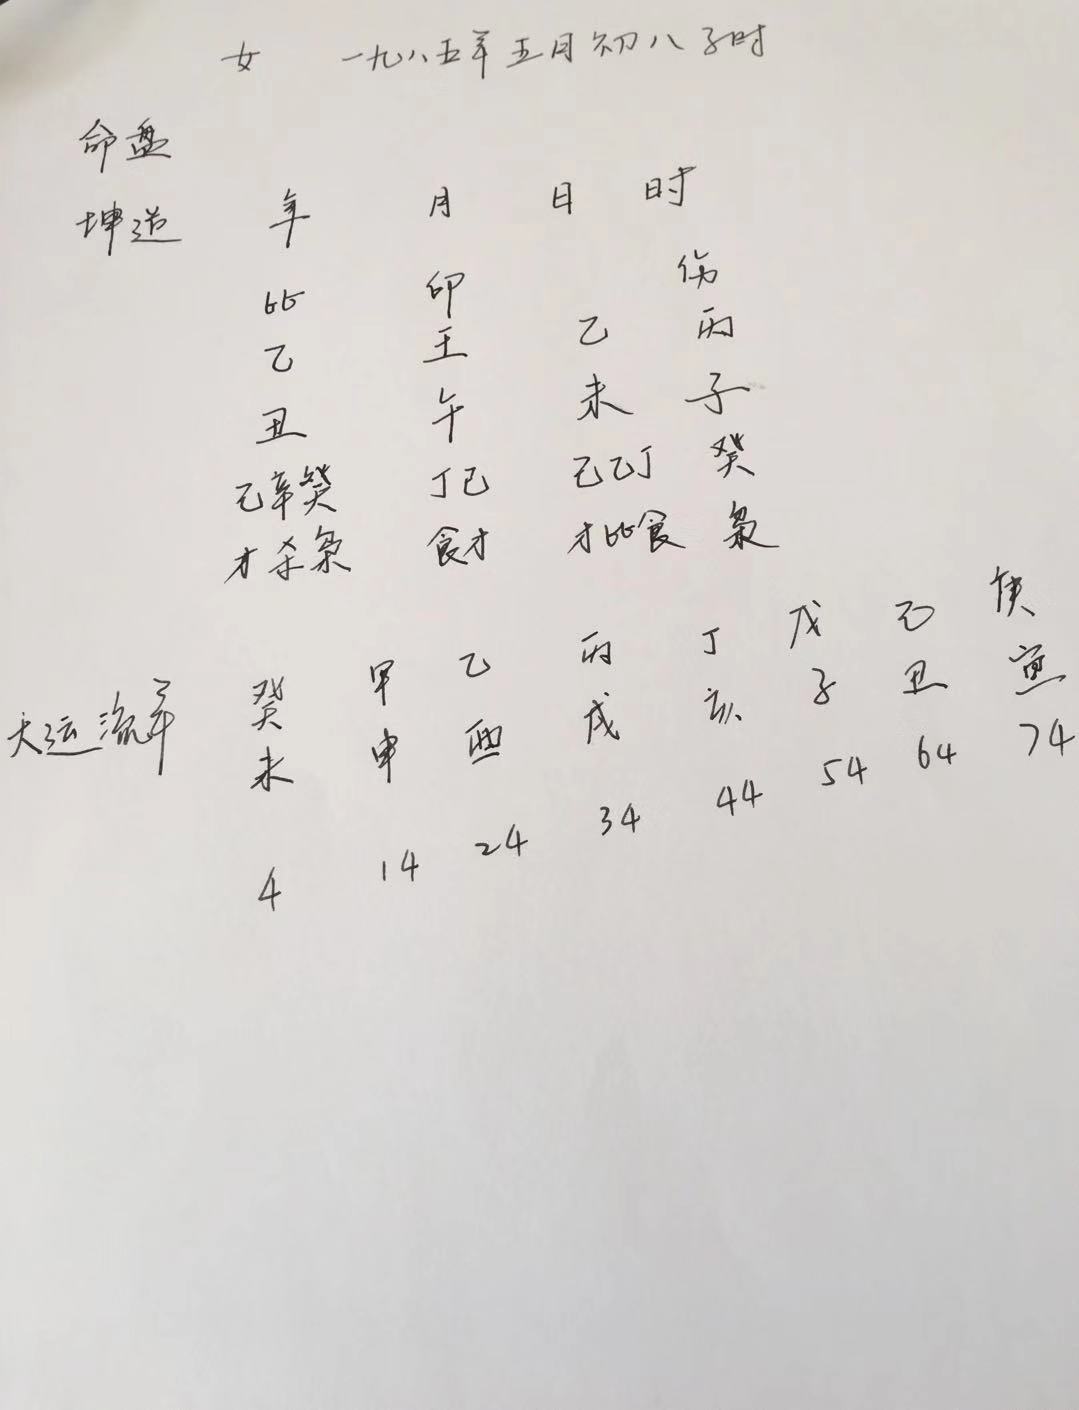 女 一九八五年五月初八子时
命盘
坤造 年 月 日 时
比 印 伤
乙 壬 乙 丙
丑 午 未 子
己辛癸 丁己 己乙丁 癸
才杀枭 食才 才比食 枭
大运流年
癸 甲 乙 丙 丁 戊 己 庚
未 申 酉 戌 亥 子 丑 寅
4 14 24 34 44 54 64 74